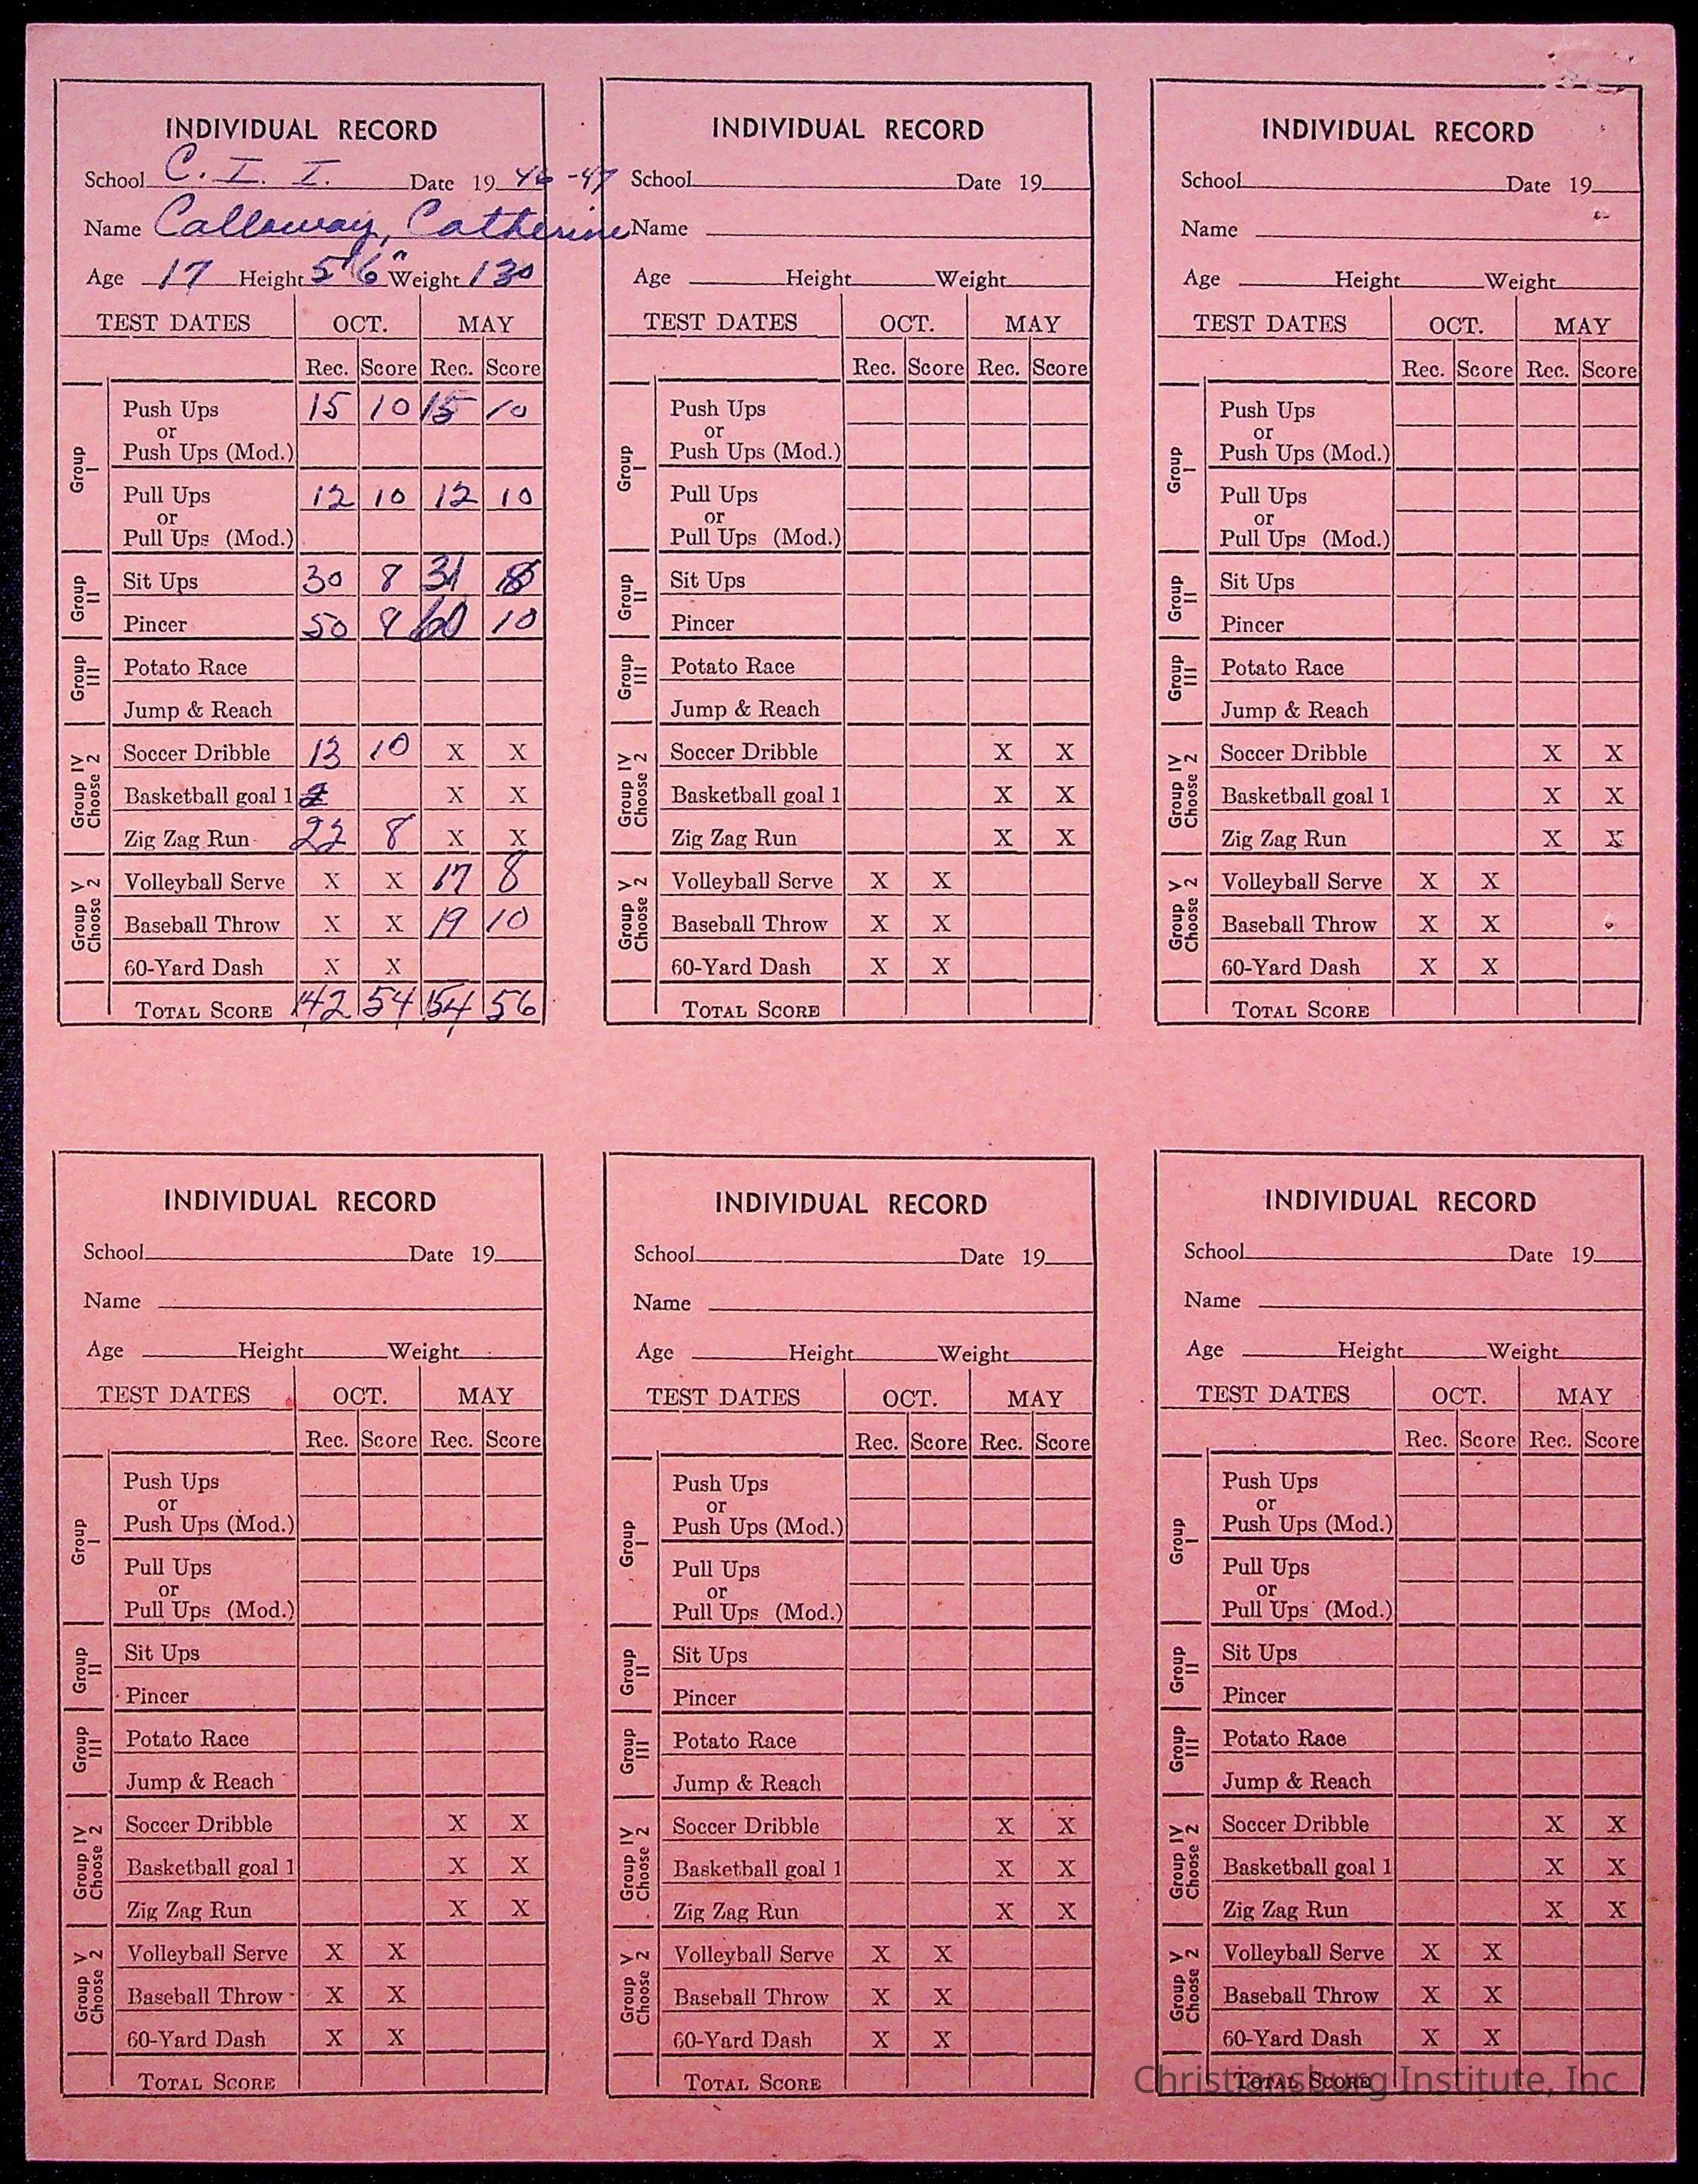 INDIVIDUAL RECORD
School C. I. I. Date 19 46-47
Name Callaway, Catherine
Age 17 Height 5'6" Weight 130
TEST DATES OCT. MAY
Rec. Score Rec. Score
Group I
Push Ups 15 10 15 10
or
Push Ups (Mod.)
Pull Ups 12 10 12 10
or
Pull Ups (Mod.)
Group II
Sit Ups 30 8 31 8
Pincer 50 8 60 10
Group III
Potato Race
Jump & Reach
Group IV Choose 2
Soccer Dribble 13 10 X X
Basketball goal 1 X X
Zig Zag Run 22 8 X X
Group V Choose 2
Volleyball Serve X X 17 8
Baseball Throw X X 19 10
60-Yard Dash X X
TOTAL SCORE 142 54 154 56
INDIVIDUAL RECORD
School Date 19
Name
Age Height Weight
TEST DATES OCT. MAY
Rec. Score Rec. Score
Group I
Push Ups
or
Push Ups (Mod.)
Pull Ups
or
Pull Ups (Mod.)
Group II
Sit Ups
Pincer
Group III
Potato Race
Jump & Reach
Group IV Choose 2
Soccer Dribble X X
Basketball goal 1 X X
Zig Zag Run X X
Group V Choose 2
Volleyball Serve X X
Baseball Throw X X
60-Yard Dash X X
TOTAL SCORE
INDIVIDUAL RECORD
School Date 19
Name
Age Height Weight
TEST DATES OCT. MAY
Rec. Score Rec. Score
Group I
Push Ups
or
Push Ups (Mod.)
Pull Ups
or
Pull Ups (Mod.)
Group II
Sit Ups
Pincer
Group III
Potato Race
Jump & Reach
Group IV Choose 2
Soccer Dribble X X
Basketball goal 1 X X
Zig Zag Run X X
Group V Choose 2
Volleyball Serve X X
Baseball Throw X X
60-Yard Dash X X
TOTAL SCORE
INDIVIDUAL RECORD
School Date 19
Name
Age Height Weight
TEST DATES OCT. MAY
Rec. Score Rec. Score
Group I
Push Ups
or
Push Ups (Mod.)
Pull Ups
or
Pull Ups (Mod.)
Group II
Sit Ups
Pincer
Group III
Potato Race
Jump & Reach
Group IV Choose 2
Soccer Dribble X X
Basketball goal 1 X X
Zig Zag Run X X
Group V Choose 2
Volleyball Serve X X
Baseball Throw X X
60-Yard Dash X X
TOTAL SCORE
INDIVIDUAL RECORD
School Date 19
Name
Age Height Weight
TEST DATES OCT. MAY
Rec. Score Rec. Score
Group I
Push Ups
or
Push Ups (Mod.)
Pull Ups
or
Pull Ups (Mod.)
Group II
Sit Ups
Pincer
Group III
Potato Race
Jump & Reach
Group IV Choose 2
Soccer Dribble X X
Basketball goal 1 X X
Zig Zag Run X X
Group V Choose 2
Volleyball Serve X X
Baseball Throw X X
60-Yard Dash X X
TOTAL SCORE
INDIVIDUAL RECORD
School Date 19
Name
Age Height Weight
TEST DATES OCT. MAY
Rec. Score Rec. Score
Group I
Push Ups
or
Push Ups (Mod.)
Pull Ups
or
Pull Ups (Mod.)
Group II
Sit Ups
Pincer
Group III
Potato Race
Jump & Reach
Group IV Choose 2
Soccer Dribble X X
Basketball goal 1 X X
Zig Zag Run X X
Group V Choose 2
Volleyball Serve X X
Baseball Throw X X
60-Yard Dash X X
TOTAL SCORE
Christiansburg Institute, Inc